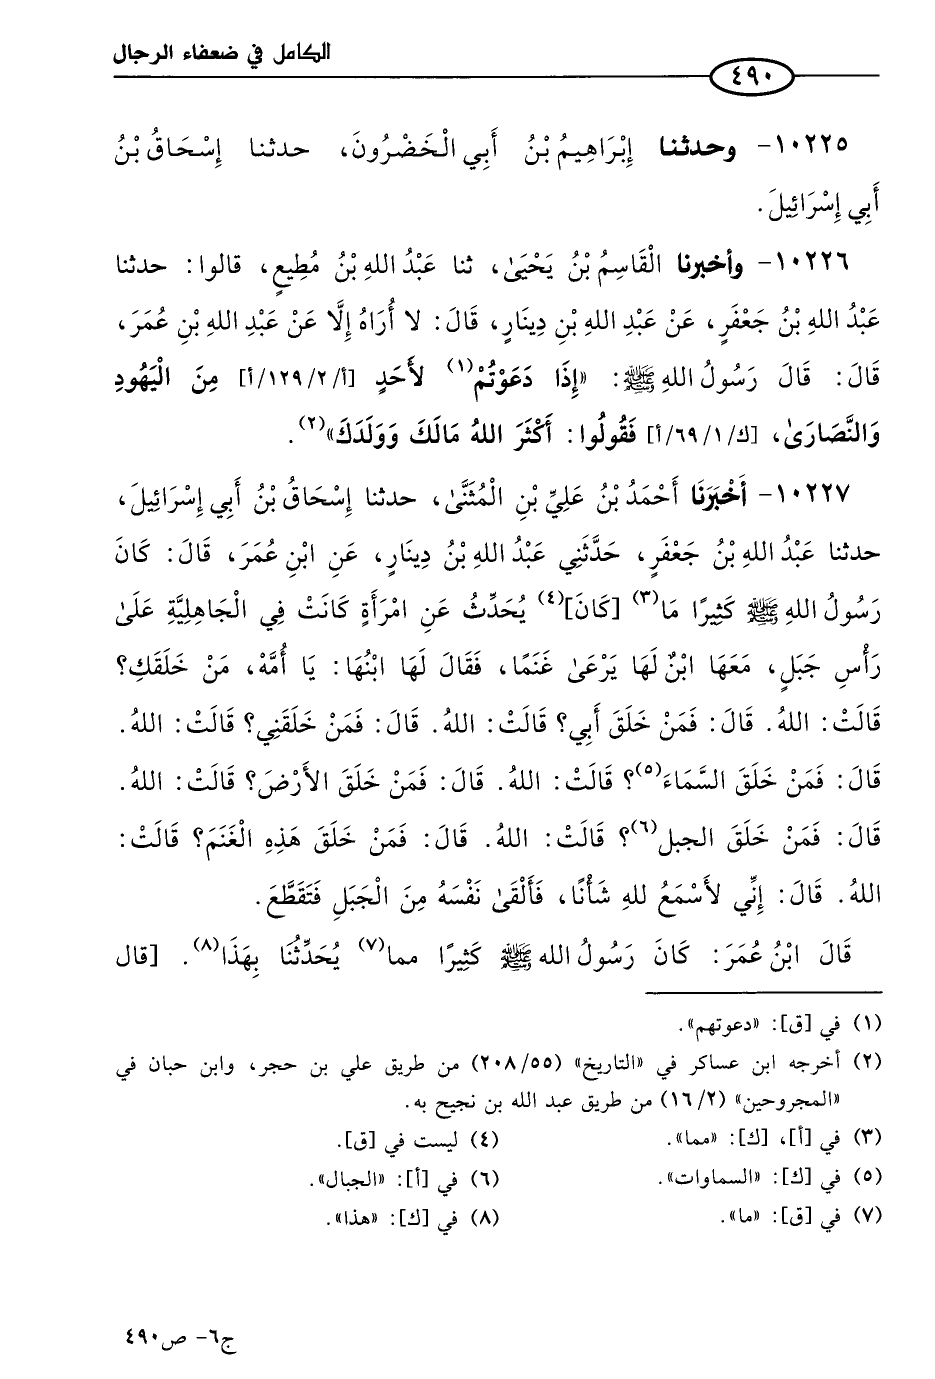 الكامل في ضعفاء الرجال
٤٩٠
١٠٢٢٥- وحدثنا إِبْرَاهِيمُ بْنُ أَبِي الْخَضْرُونَ، حدثنا إِسْحَاقُ بْنُ
أَبِي إِسْرَائِيلَ.
١٠٢٢٦- وأخبرنا الْقَاسِمُ بْنُ يَحْيَىٰ، ثنا عَبْدُ اللهِ بْنُ مُطِيعٍ، قالوا: حدثنا
عَبْدُ اللهِ بْنُ جَعْفَرٍ، عَنْ عَبْدِ اللهِ بْنِ دِينَارٍ، قَالَ: لا أُرَاهُ إِلَّا عَنْ عَبْدِ اللهِ بْنِ عُمَرَ،
قَالَ: قَالَ رَسُولُ اللهِ ﷺ: «إِذَا دَعَوْتُمْ(١) لأَحَدٍ [أ/١٢٩/٢/أ] مِنَ الْيَهُودِ
وَالنَّصَارَىٰ، [ك/٦٩/١/أ] فَقُولُوا: أَكْثَرَ اللهُ مَالَكَ وَوَلَدَكَ»(٢).
١٠٢٢٧- أَخْبَرَنَا أَحْمَدُ بْنُ عَلِيِّ بْنِ الْمُثَنَّىٰ، حدثنا إِسْحَاقُ بْنُ أَبِي إِسْرَائِيلَ،
حدثنا عَبْدُ اللهِ بْنُ جَعْفَرٍ، حَدَّثَنِي عَبْدُ اللهِ بْنُ دِينَارٍ، عَنِ ابْنِ عُمَرَ، قَالَ: كَانَ
رَسُولُ اللهِ ﷺ كَثِيرًا مَا(٣) [كَانَ](٤) يُحَدِّثُ عَنِ امْرَأَةٍ كَانَتْ فِي الْجَاهِلِيَّةِ عَلَىٰ
رَأْسِ جَبَلٍ، مَعَهَا ابْنٌ لَهَا يَرْعَىٰ غَنَمًا، فَقَالَ لَهَا ابْنُهَا: يَا أُمَّهْ، مَنْ خَلَقَكِ؟
قَالَتْ: اللهُ. قَالَ: فَمَنْ خَلَقَ أَبِي؟ قَالَتْ: اللهُ. قَالَ: فَمَنْ خَلَقَنِي؟ قَالَتْ: اللهُ.
قَالَ: فَمَنْ خَلَقَ السَّمَاءَ(٥)؟ قَالَتْ: اللهُ. قَالَ: فَمَنْ خَلَقَ الأَرْضَ؟ قَالَتْ: اللهُ.
قَالَ: فَمَنْ خَلَقَ الجبل(٦)؟ قَالَتْ: اللهُ. قَالَ: فَمَنْ خَلَقَ هَذِهِ الْغَنَمَ؟ قَالَتْ:
اللهُ. قَالَ: إِنِّي لأَسْمَعُ للهِ شَأْنًا، فَأَلْقَىٰ نَفْسَهُ مِنَ الْجَبَلِ فَتَقَطَّعَ.
قَالَ ابْنُ عُمَرَ: كَانَ رَسُولُ الله ﷺ كَثِيرًا مما(٧) يُحَدِّثُنَا بِهَذَا(٨). [قال
(١) في [ق]: «دعوتهم».
(٢) أخرجه ابن عساكر في «التاريخ» (٢٠٨/٥٥) من طريق علي بن حجر، وابن حبان في
«المجروحين» (١٦/٢) من طريق عبد الله بن نجيح به.
(٣) في [أ]، [ك]: «مما».
(٤) ليست في [ق].
(٥) في [ك]: «السماوات».
(٦) في [أ]: «الجبال».
(٧) في [ق]: «ما».
(٨) في [ك]: «هذا».
ج٦- ص٤٩٠